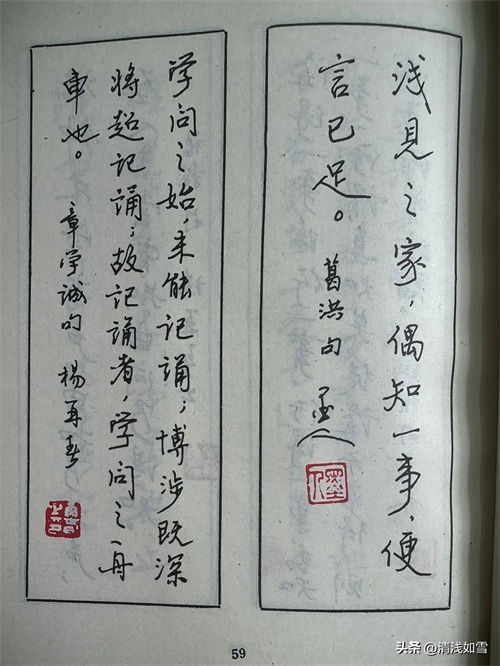 浅见之家，偶知一事，便
言已足。 葛洪句
学问之始，未能记诵；博涉既深
将超记诵；故记诵者，学问之舟
车也。 章学诚句 杨再春
59
头条 @清浅如雪